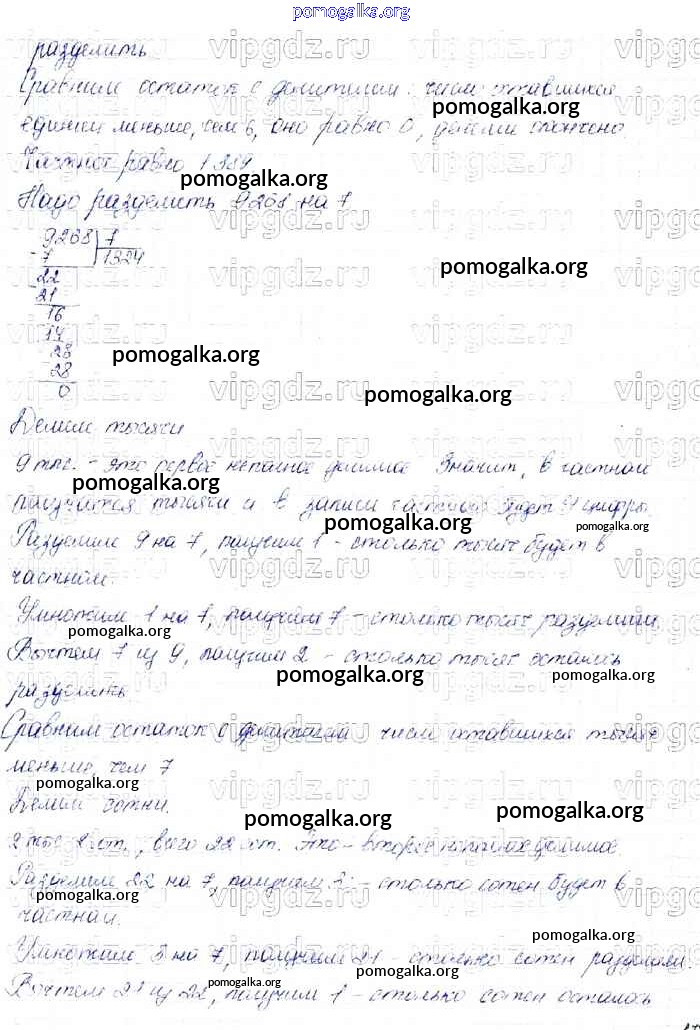 pomogalka.org
разделить
Сравним остаток с делителем: число оставшихся
единиц меньше, чем 6, оно равно 0, деление окончено
Частное равно
Надо разделить 9268 на 7
9268 7
- 7 1324
22
21
16
14
28
28
0
Делим тысячи
9 тыс. - это первое неполное делимое Значит, в частном
получатся тысячи и в записи частного будет 4 цифры.
Разделим 9 на 7, получим 1 - столько тысяч будет в
частном.
Умножим 1 на 7, получим 7 - столько тысяч разделили.
Вычтем 7 из 9, получим 2 - столько тысяч осталось
разделить
Сравним остаток с делителем число оставшихся тысяч
меньше, чем 7
Делим сотни.
2 тыс. 2 сот., всего 22 сот. Это - второе неполное делимое.
Разделим 22 на 7, получим 3 - столько сотен будет в
частном.
Умножим 3 на 7, получим 21 - столько сотен разделили.
Вычтем 21 из 22, получим 1 - столько сотен осталось